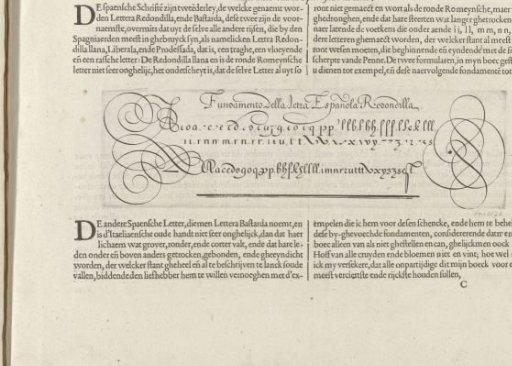 DE spaensche Schrift zijn tweederley, de welcke genaemt wor-
den Lettera Redondilla, ende Bastarda, dese twee zijn de voor-
naemste, overmits dat uyt de selve alle andere rijsen, die by den
Spagniaerden meest in ghebruyck syn, als namelicken Letra Redon-
dilla llana, Liberala, ende Prodessada, dat is, een traghe, een vloeyende
en een rasche letter: De Redondilla llana en is de ronde Romeynsche
letter niet seer onghelijc, het onderscheyt is, dat de selve Letter al uyt so
root niet gemaeckt en wort als de ronde Romeynsche, maer
ghedronghen, ende dat hare steerten wat langer ghetrocken
naer laten de de voetkens die onder aende i j, ll, m m, n n,
der letteren ghemaeckt worden, der welcker stant al meest
root wesen moeten, die beghinnende en eyndende met de
scherpte vande Penne. De twee formulairen, in myn boec gest
u dienen tot exempel, en dese naervolgende fondamente tot
Fundamento della letra Española Redondilla
DE andere Spaensche Letter, diemen Lettera Bastarda noemt, en
is d'Italiaensche oude handt niet seer onghelijck, dan dat haer
lichaem wat grover, ronder, ende corter valt, ende dat hare le-
den onder en boven anders getrocken, gebonden, ende gheeyndicht
worden, der welcker stant gheheel en al te beschrijven te lanck soude
vallen, biddende den liefhebber hem te willen vernoeghen met d'ex-
empelen die ic hem voor desen schencke, ende hem te behel
dese by-ghevoechde fondamenten, considererende dat
boec alleen van als niet ghestellen en can, ghelijckmen oock
Hoff van alle cruyden ende bloemen niet en vint; hoe wel
ick my versekere, dat alle onpartijdige dit mijn boeck voor
meest vercierste ende rijckste houden sullen,
C